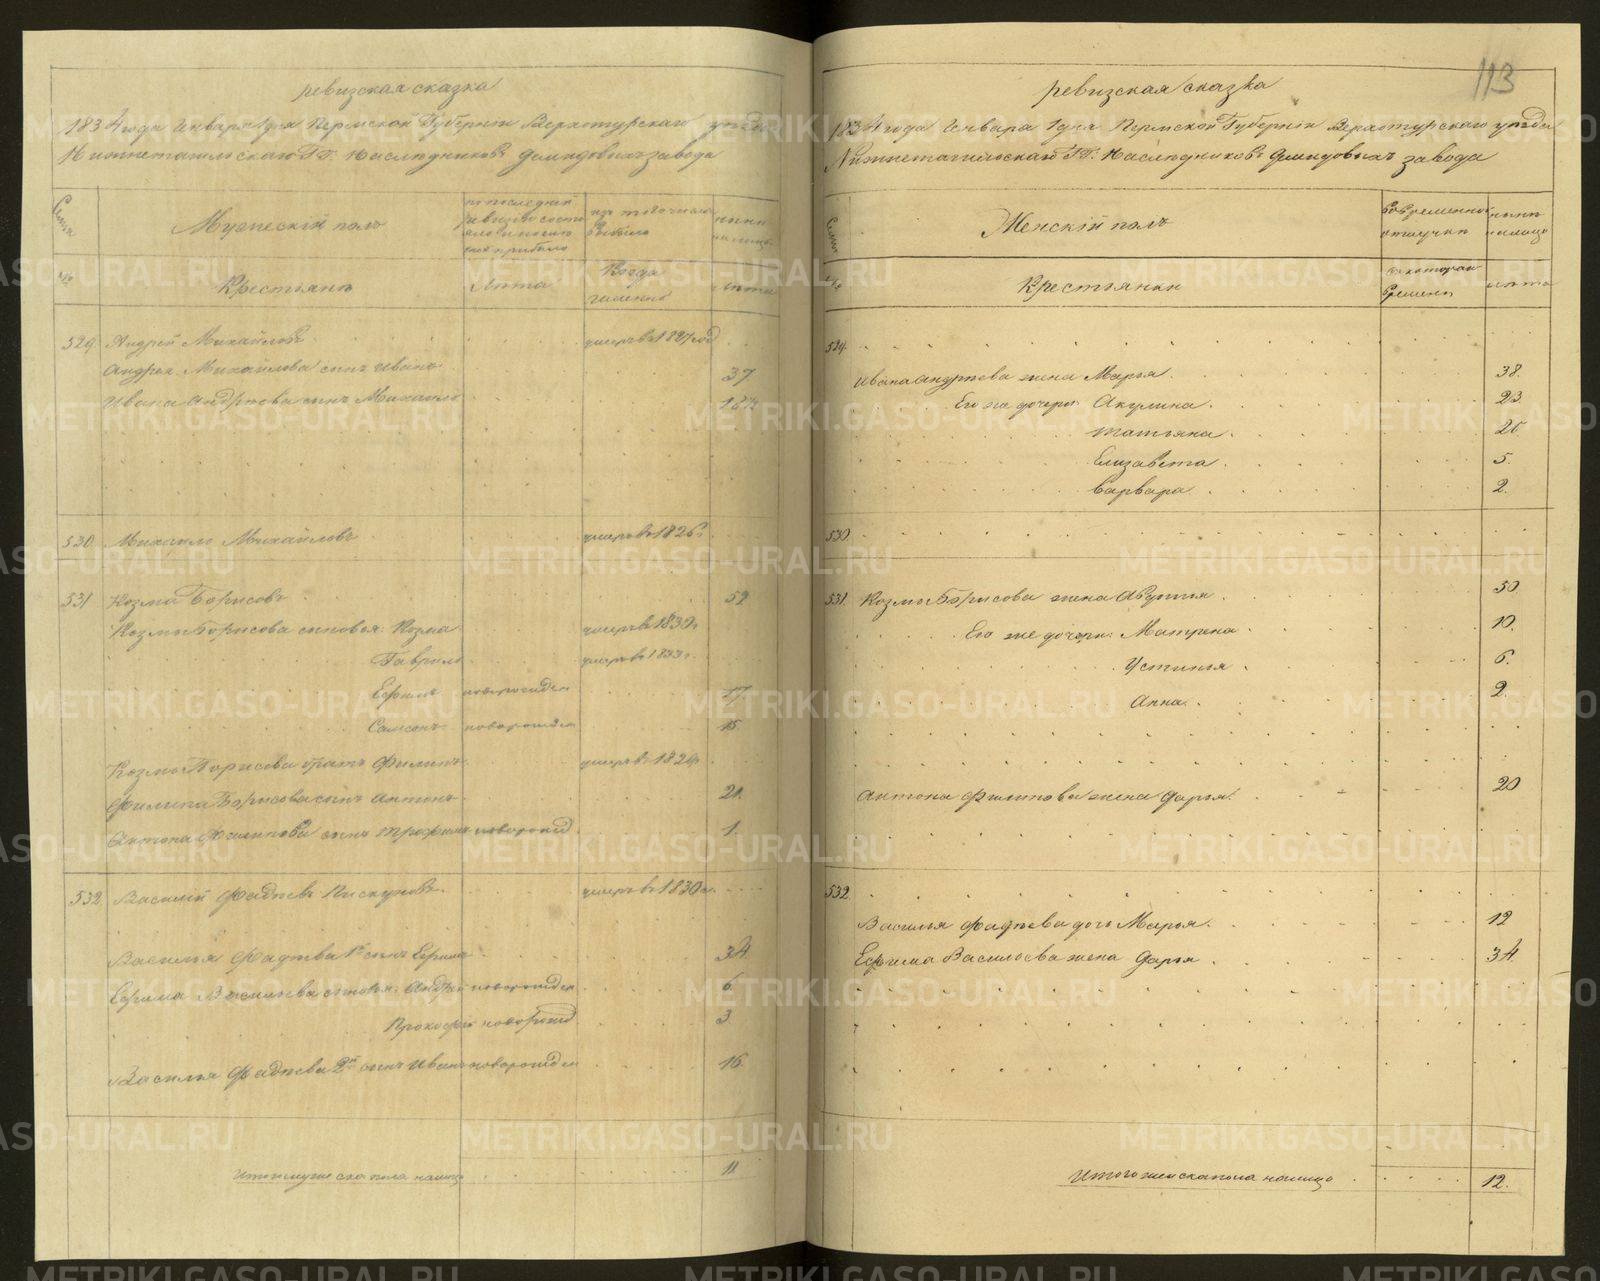 ревизская сказка
1834 года Генваря 1 дня Пермской Губернии Верхотурскаго уѣзда
Нижнетагильскаго ГГ. Наслѣдниковъ Демидовыхъ завода
Семьи
Мужескій полъ
по последней ревизіи состояло и послѣ оной прибыло
изъ того числа выбыло
нынѣ на лицо
№
Крестьяне
Лѣта
Когда именно
лѣта
529. Андрей Михайловъ умеръ въ 1827 год
Андрея Михайлова сынъ Иванъ 37
Ивана Андрѣева сынъ Михайло
530 Михайло Михайловъ умеръ въ 1826 г
531 Козма Борисовъ 52
Козмы Борисова сыновья: Козма умеръ въ 1830 г
Гаврило умеръ въ 1833 г
Ефимъ новорожден 17
Самсонъ новорожден 15
Козмы Борисова братъ Филипъ умеръ въ 1824 г
Филипа Борисова сынъ Антонъ 21
Антона Филипова сынъ Трофимъ новорожд 1.
532 Василий Фадѣевъ Пискуновъ умеръ въ 1830 г
Василья Фадѣева 1й сынъ Ефимъ 34
Ефима Васильева сыновья: Андрей новорожден 6
Прокофій новорожд 3
Василья Фадѣева 2й сынъ Иванъ новорожден 16
Итого мужеска пола налицо 11
113
ревизская сказка
1834 года Генваря 1 дня Пермской Губернии Верхотурскаго уѣзда
Нижнетагильскаго ГГ. Наслѣдниковъ Демидовыхъ завода
Семьи
Женскій полъ
Во временной отлучкѣ
нынѣ на лицо
№
Крестьянки
съ котораго времени
лѣта
529.
Ивана Андрѣева жена Марья 38.
Его же дочери: Акулина 23
Татьяна 20
Елизавета 5.
Варвара 2.
530
531 Козмы Борисова жена Авдотья 50
Его же дочери: Матрена 10.
Устинья 6.
Анна 2.
Антона Филипова жена Дарья 20
532
Василья Фадѣева дочь Марья 12
Ефима Васильева жена Дарья 34.
Итого женска пола налицо 12.
METRIKI.GASO-URAL.RU